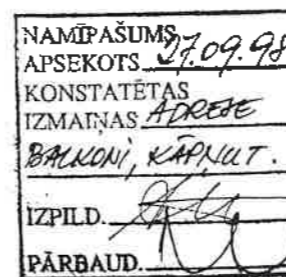 NAMĪPAŠUMS
APSEKOTS 27.09.98
KONSTATĒTAS
IZMAIŅAS ADRESE
BALKONI, KĀPŅUT.
IZPILD.
PĀRBAUD.